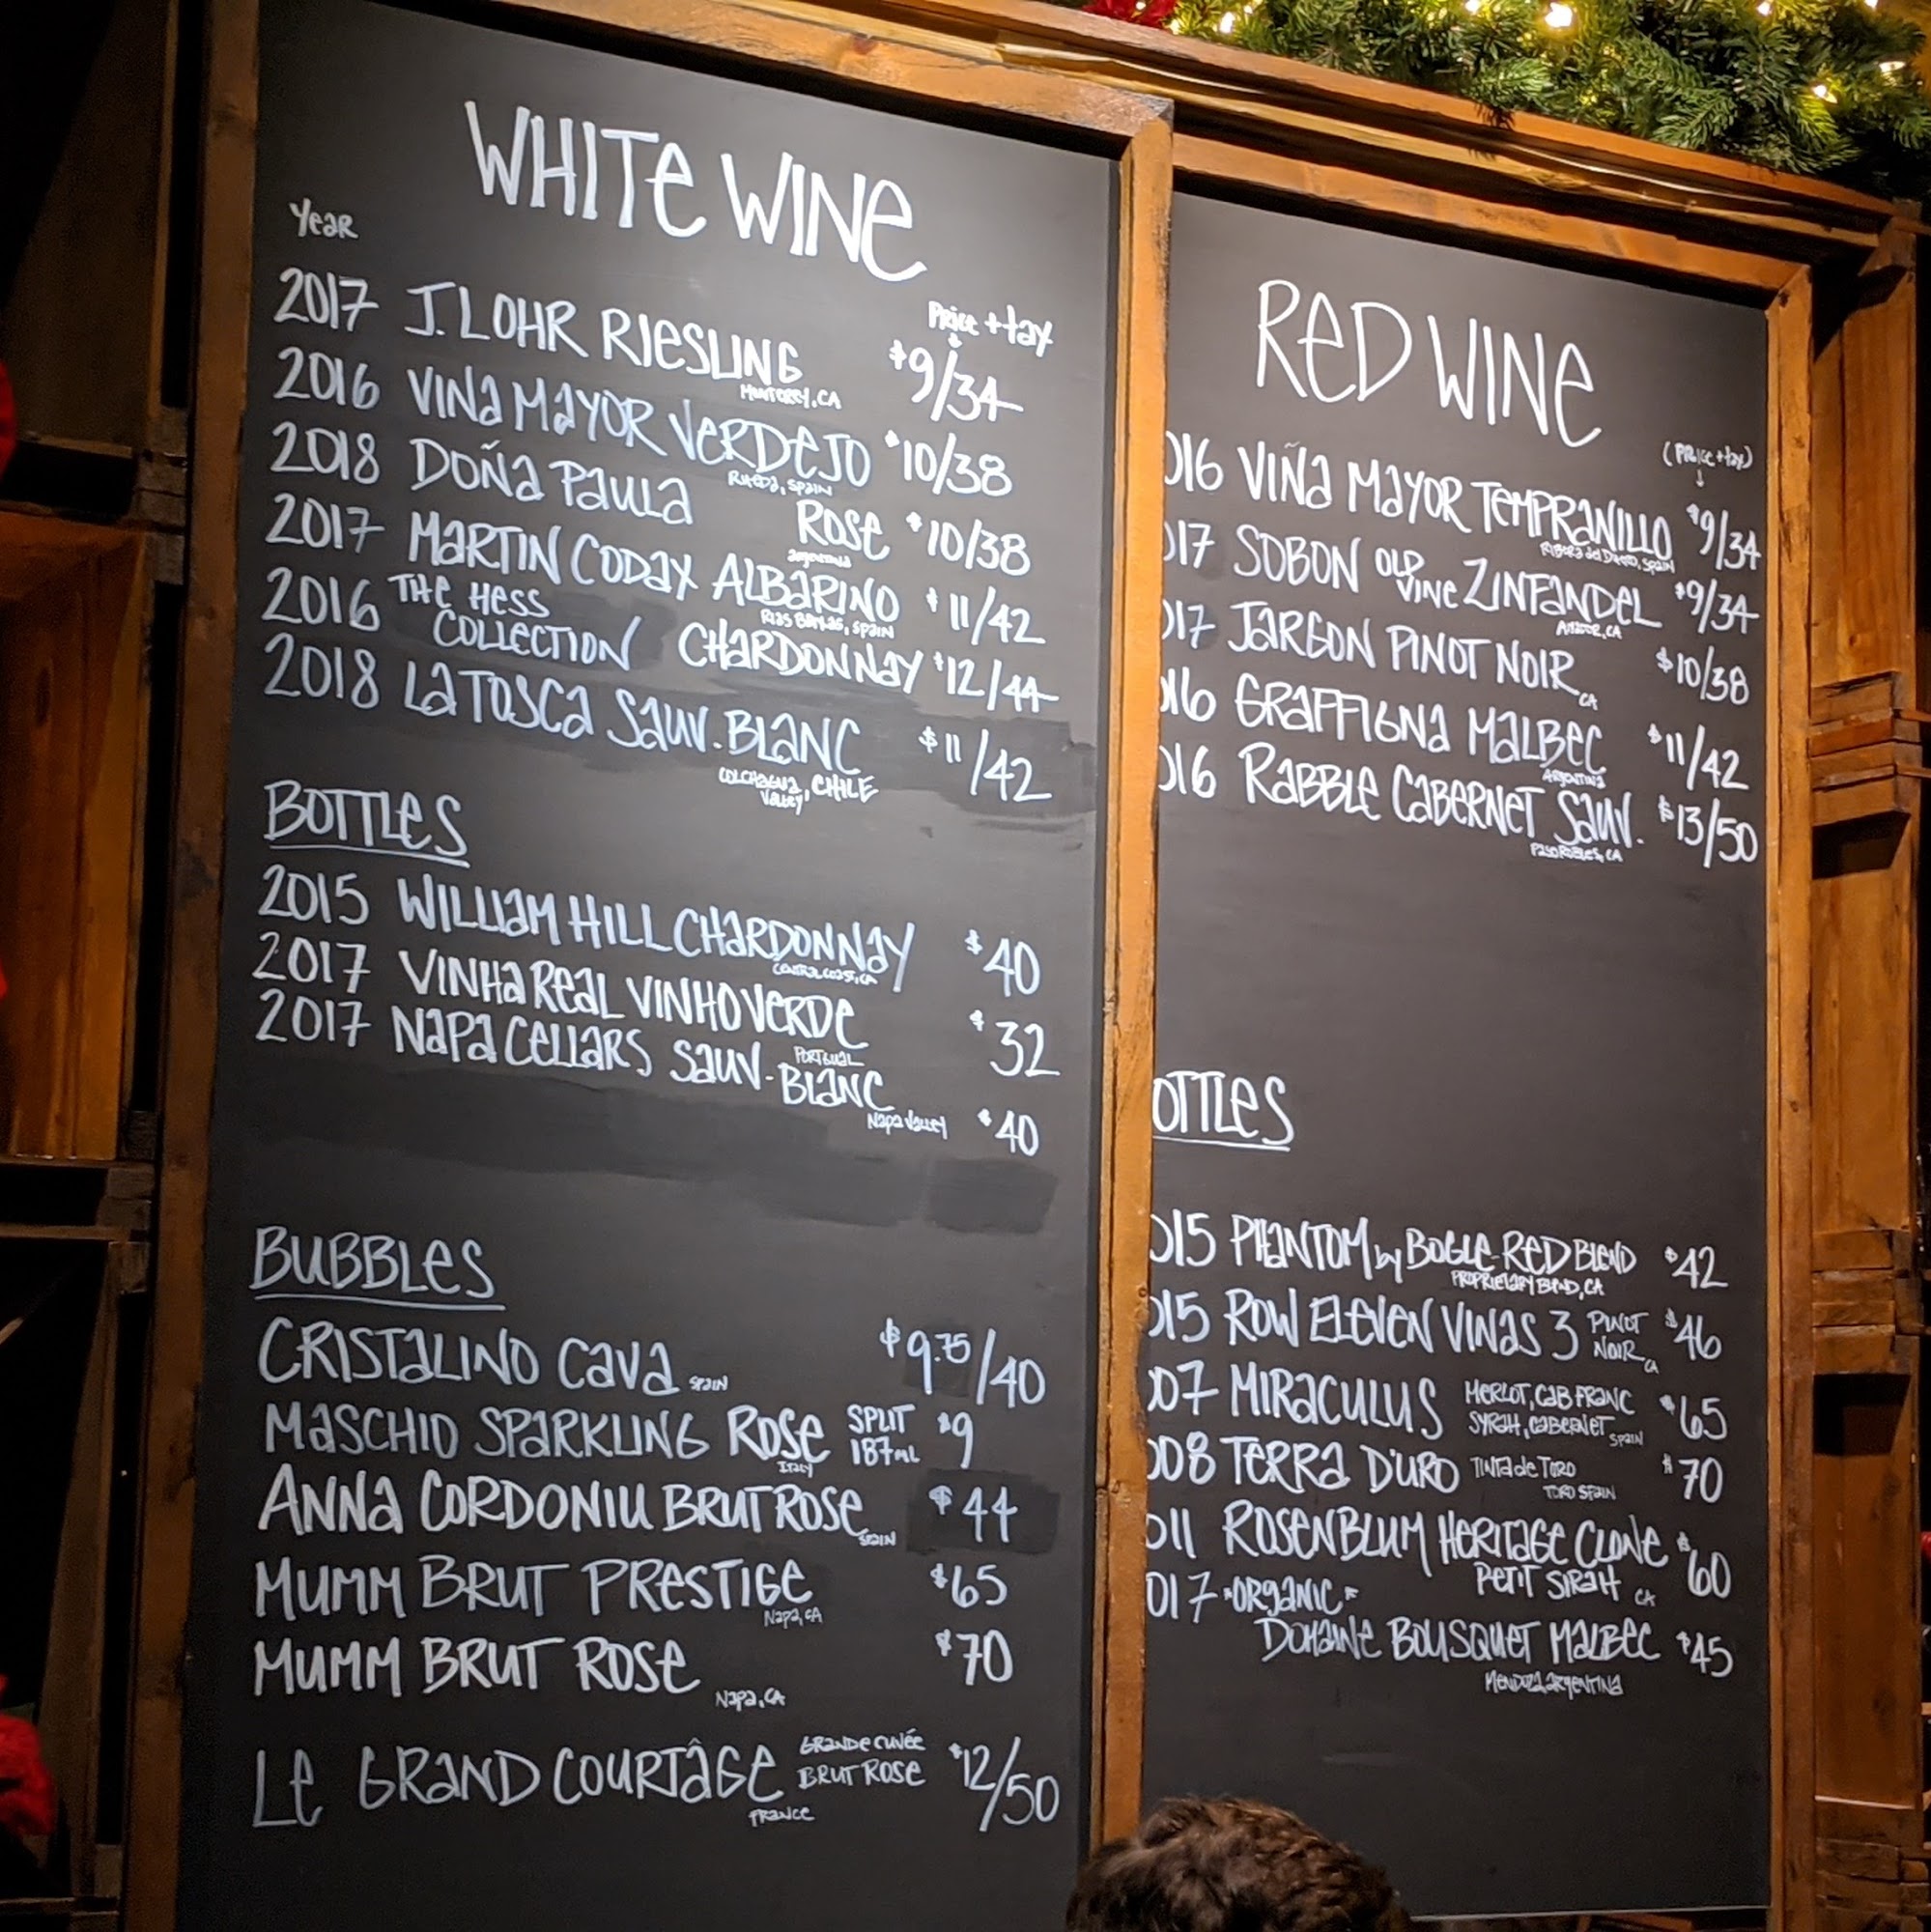 WHITE WINE
Year
Price + tax
2017 J. LOHR RIESLING $9/34
MONTEREY, CA
2016 VINA MAYOR VERDEJO $10/38
RUEDA, SPAIN
2018 DOÑA PAULA ROSE $10/38
argentina
2017 MARTIN CODAX ALBARINO $11/42
RIAS BAIXAS, SPAIN
2016 THE HESS COLLECTION CHARDONNAY $12/44
2018 LA TOSCA SAUV. BLANC $11/42
COLCHAGUA VALLEY, CHILE
BOTTLES
2015 WILLIAM HILL CHARDONNAY $40
CENTRAL COAST, CA
2017 VINHA REAL VINHO VERDE $32
PORTGUAL
2017 NAPA CELLARS SAUV-BLANC $40
NAPA VALLEY
BUBBLES
CRISTALINO CAVA SPAIN $9.75/40
MASCHIO SPARKLING ROSE SPLIT 187ML $9
ITALY
ANNA CORDONIU BRUT ROSE $44
SPAIN
MUMM BRUT PRESTIGE $65
NAPA, CA
MUMM BRUT ROSE $70
NAPA, CA
LE GRAND COURTÂGE GRANDE CUVÉE BRUT ROSE $12/50
FRANCE
RED WINE
(PRICE + tax)
016 VIÑA MAYOR TEMPRANILLO $9/34
RIBERA del DUERO, SPAIN
017 SOBON OLD VINE ZINFANDEL $9/34
AMADOR, CA
017 JARGON PINOT NOIR $10/38
CA
016 GRAFFIGNA MALBEC $11/42
ARGENTINA
016 RABBLE CABERNET SAUV. $13/50
PASO ROBLES, CA
OTTLES
015 PHANTOM by BOGLE-RED BLEND $42
PROPRIETARY BLEND, CA
015 ROW ELEVEN VINAS 3 PINOT NOIR CA $46
007 MIRACULUS MERLOT, CAB FRANC $65
SYRAH, CABERNET SPAIN
008 TERRA D'URO TINTA de TORO $70
TORO SPAIN
011 ROSENBLUM HERITAGE CLONE $60
PETIT SIRAH CA
017 "ORGANIC"
DOMAINE BOUSQUET MALBEC $45
MENDOZA, ARGENTINA